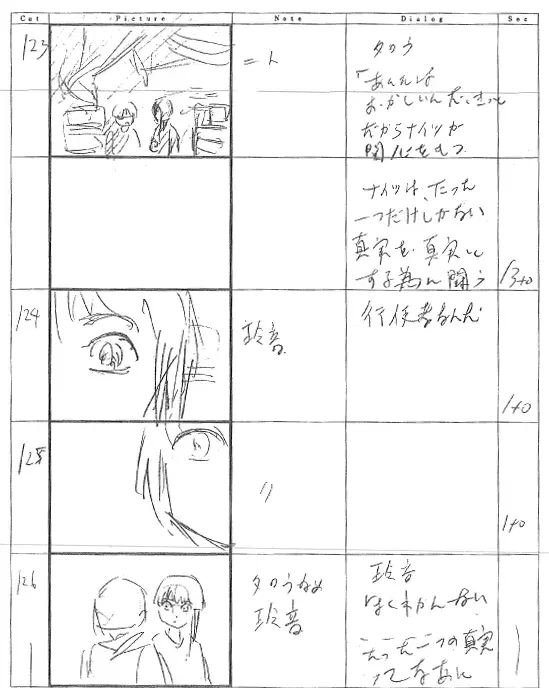 Cut Picture Note Dialog Sec
123
二人
タロウ
「あんたは
おかしいんだ、きっと
だからナイツが
関心をもつ
ナイツは、たった
一つだけしかない
真実を真実に
する為に闘う
13+0
124
玲音
行使者なんだ
1+0
125
〃
1+0
126
タロウなめ
玲音
玲音
よくわかんない
たった一つの真実
ってなあに